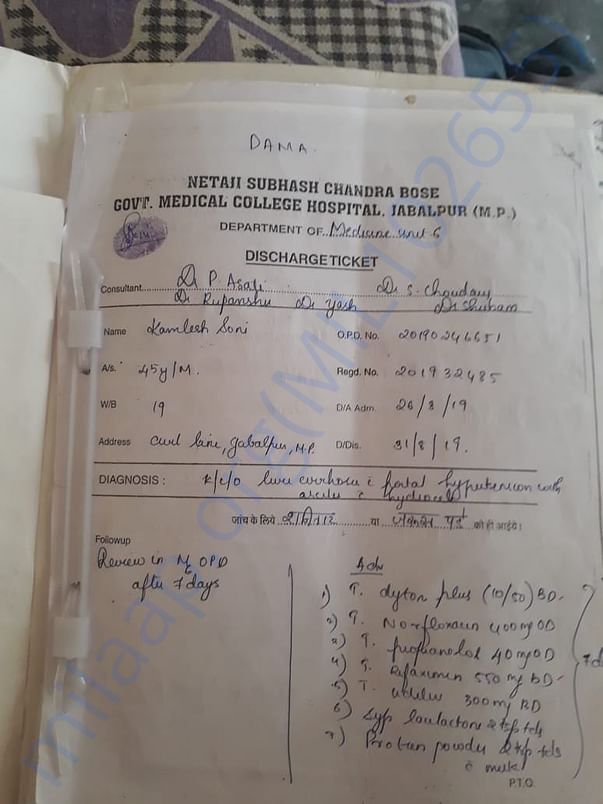 DAMA.
NETAJI SUBHASH CHANDRA BOSE
GOVT. MEDICAL COLLEGE HOSPITAL, JABALPUR (M.P.)
DEPARTMENT OF Medicine unit 6
DISCHARGE TICKET
Consultant Dr P. Asati Dr S. Choudary
Dr Rupanshu Dr Yash Dr Shubham
Name Kamlesh Soni O.P.D. No. 20190246651
A/s. 45y/M. Regd. No. 201932485
W/B 19 D/A Adm. 26/8/19
Address Civil line, Jabalpur, M.P. D/Dis. 31/8/19.
DIAGNOSIS : K/c/o liver cirrhosis c portal hypertension with
ascites c hydrocele
जांच के लिये शनिवार या को ही आईये।
Followup
Review in OPD
after 7 days
Adv
1) T. dytor plus (10/50) BD.
2) T. Norfloxacin 400mg OD
3) T. propranolol 40mg OD
4) T. Rifaximin 550 mg BD
5) T. 300mg BD
6) Syp tsp tds
7) Protein powder 2 tsp tds
c milk
P.T.O.
milaap.org(MIL1026553)